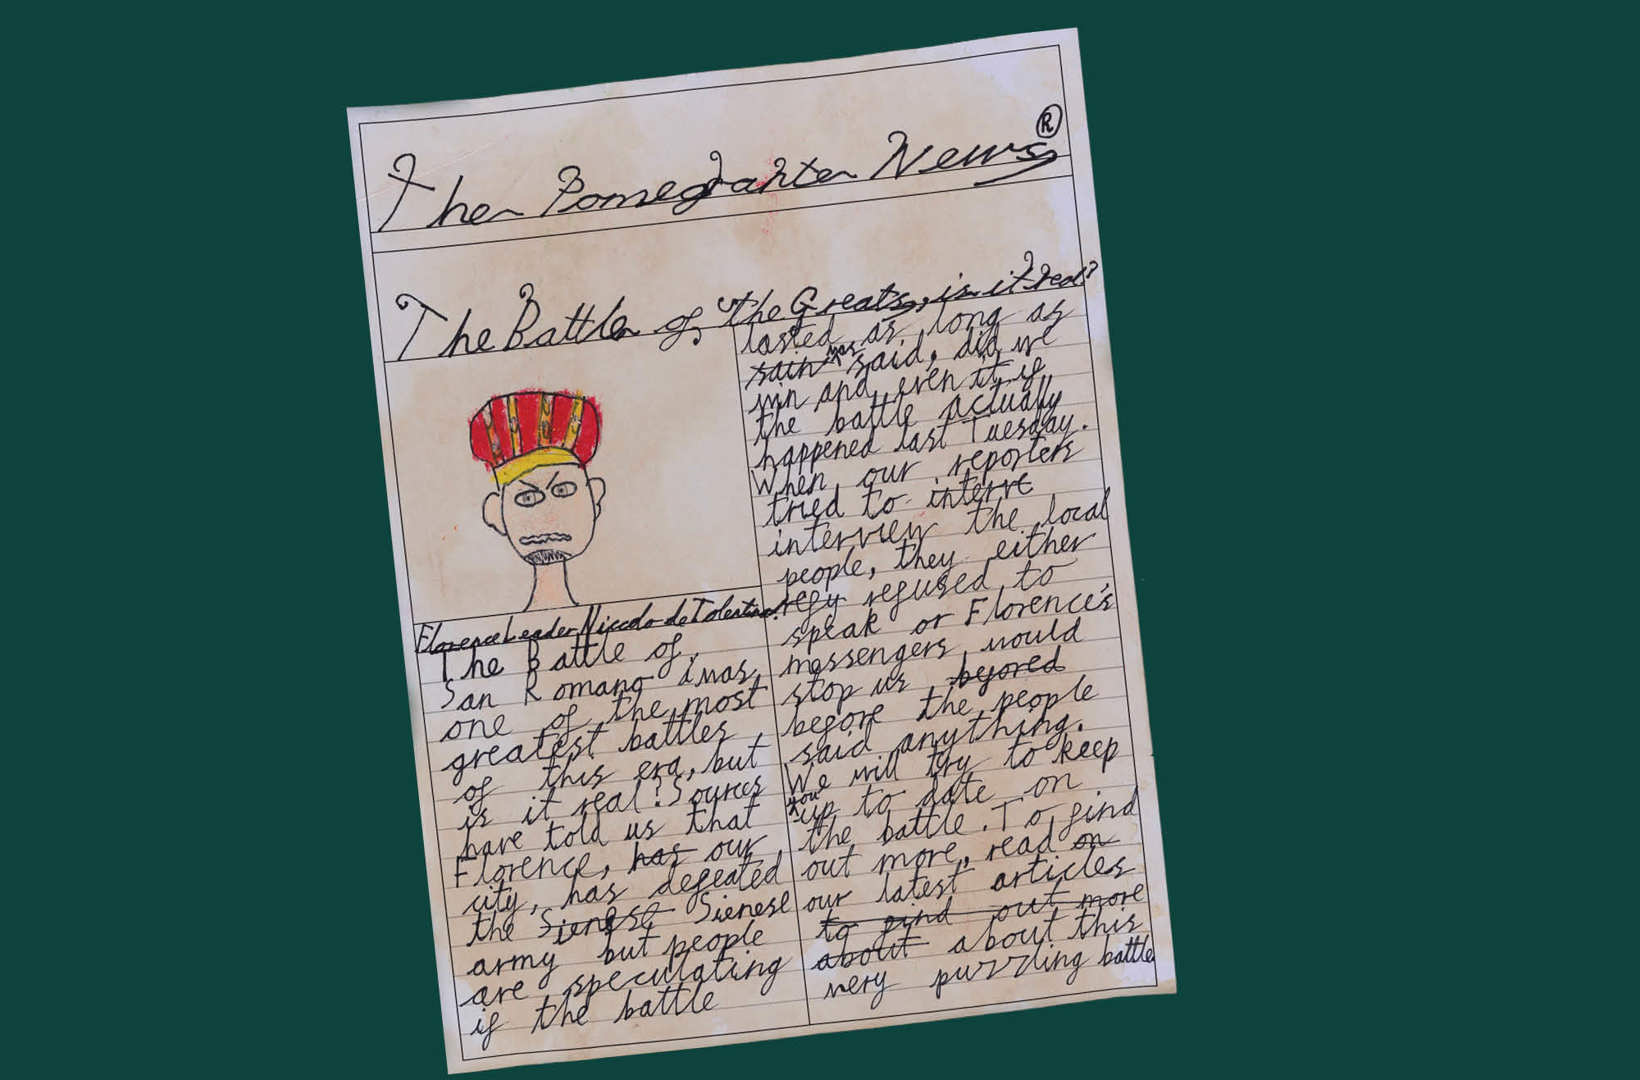 The Pomegranate News®
The Battle of the Greats, is it real?
Florence Leader Niccolo de Tolentino!
The Battle of
San Romano was
one of the most
greatest battles
of this era, but
is it real? Sources
have told us that
Florence, has our
city, has defeated
the Sienese Sienese
army but people
are speculating
if the battle
lasted as long as
sain was said, did we
win and even it if
the battle actually
happened last Tuesday.
When our reporters
tried to interve
interview the local
people, they either
refu refused to
speak or Florence's
messengers would
stop us befored
before the people
said anything.
We will try to keep
you up to date on
the battle. To find
out more, read on
our latest articles
to find out more
about about this
very puzzling battle